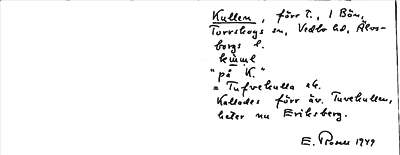 Kullen, förr t., i Bön,
Torrskogs sn, Vedbo hd, Älvs-
borgs l.
"på K."
= Tufvekulla ek.
Kallades förr äv. Tuvekullen,
heter nu Eriksberg.
E. Rosell 1949